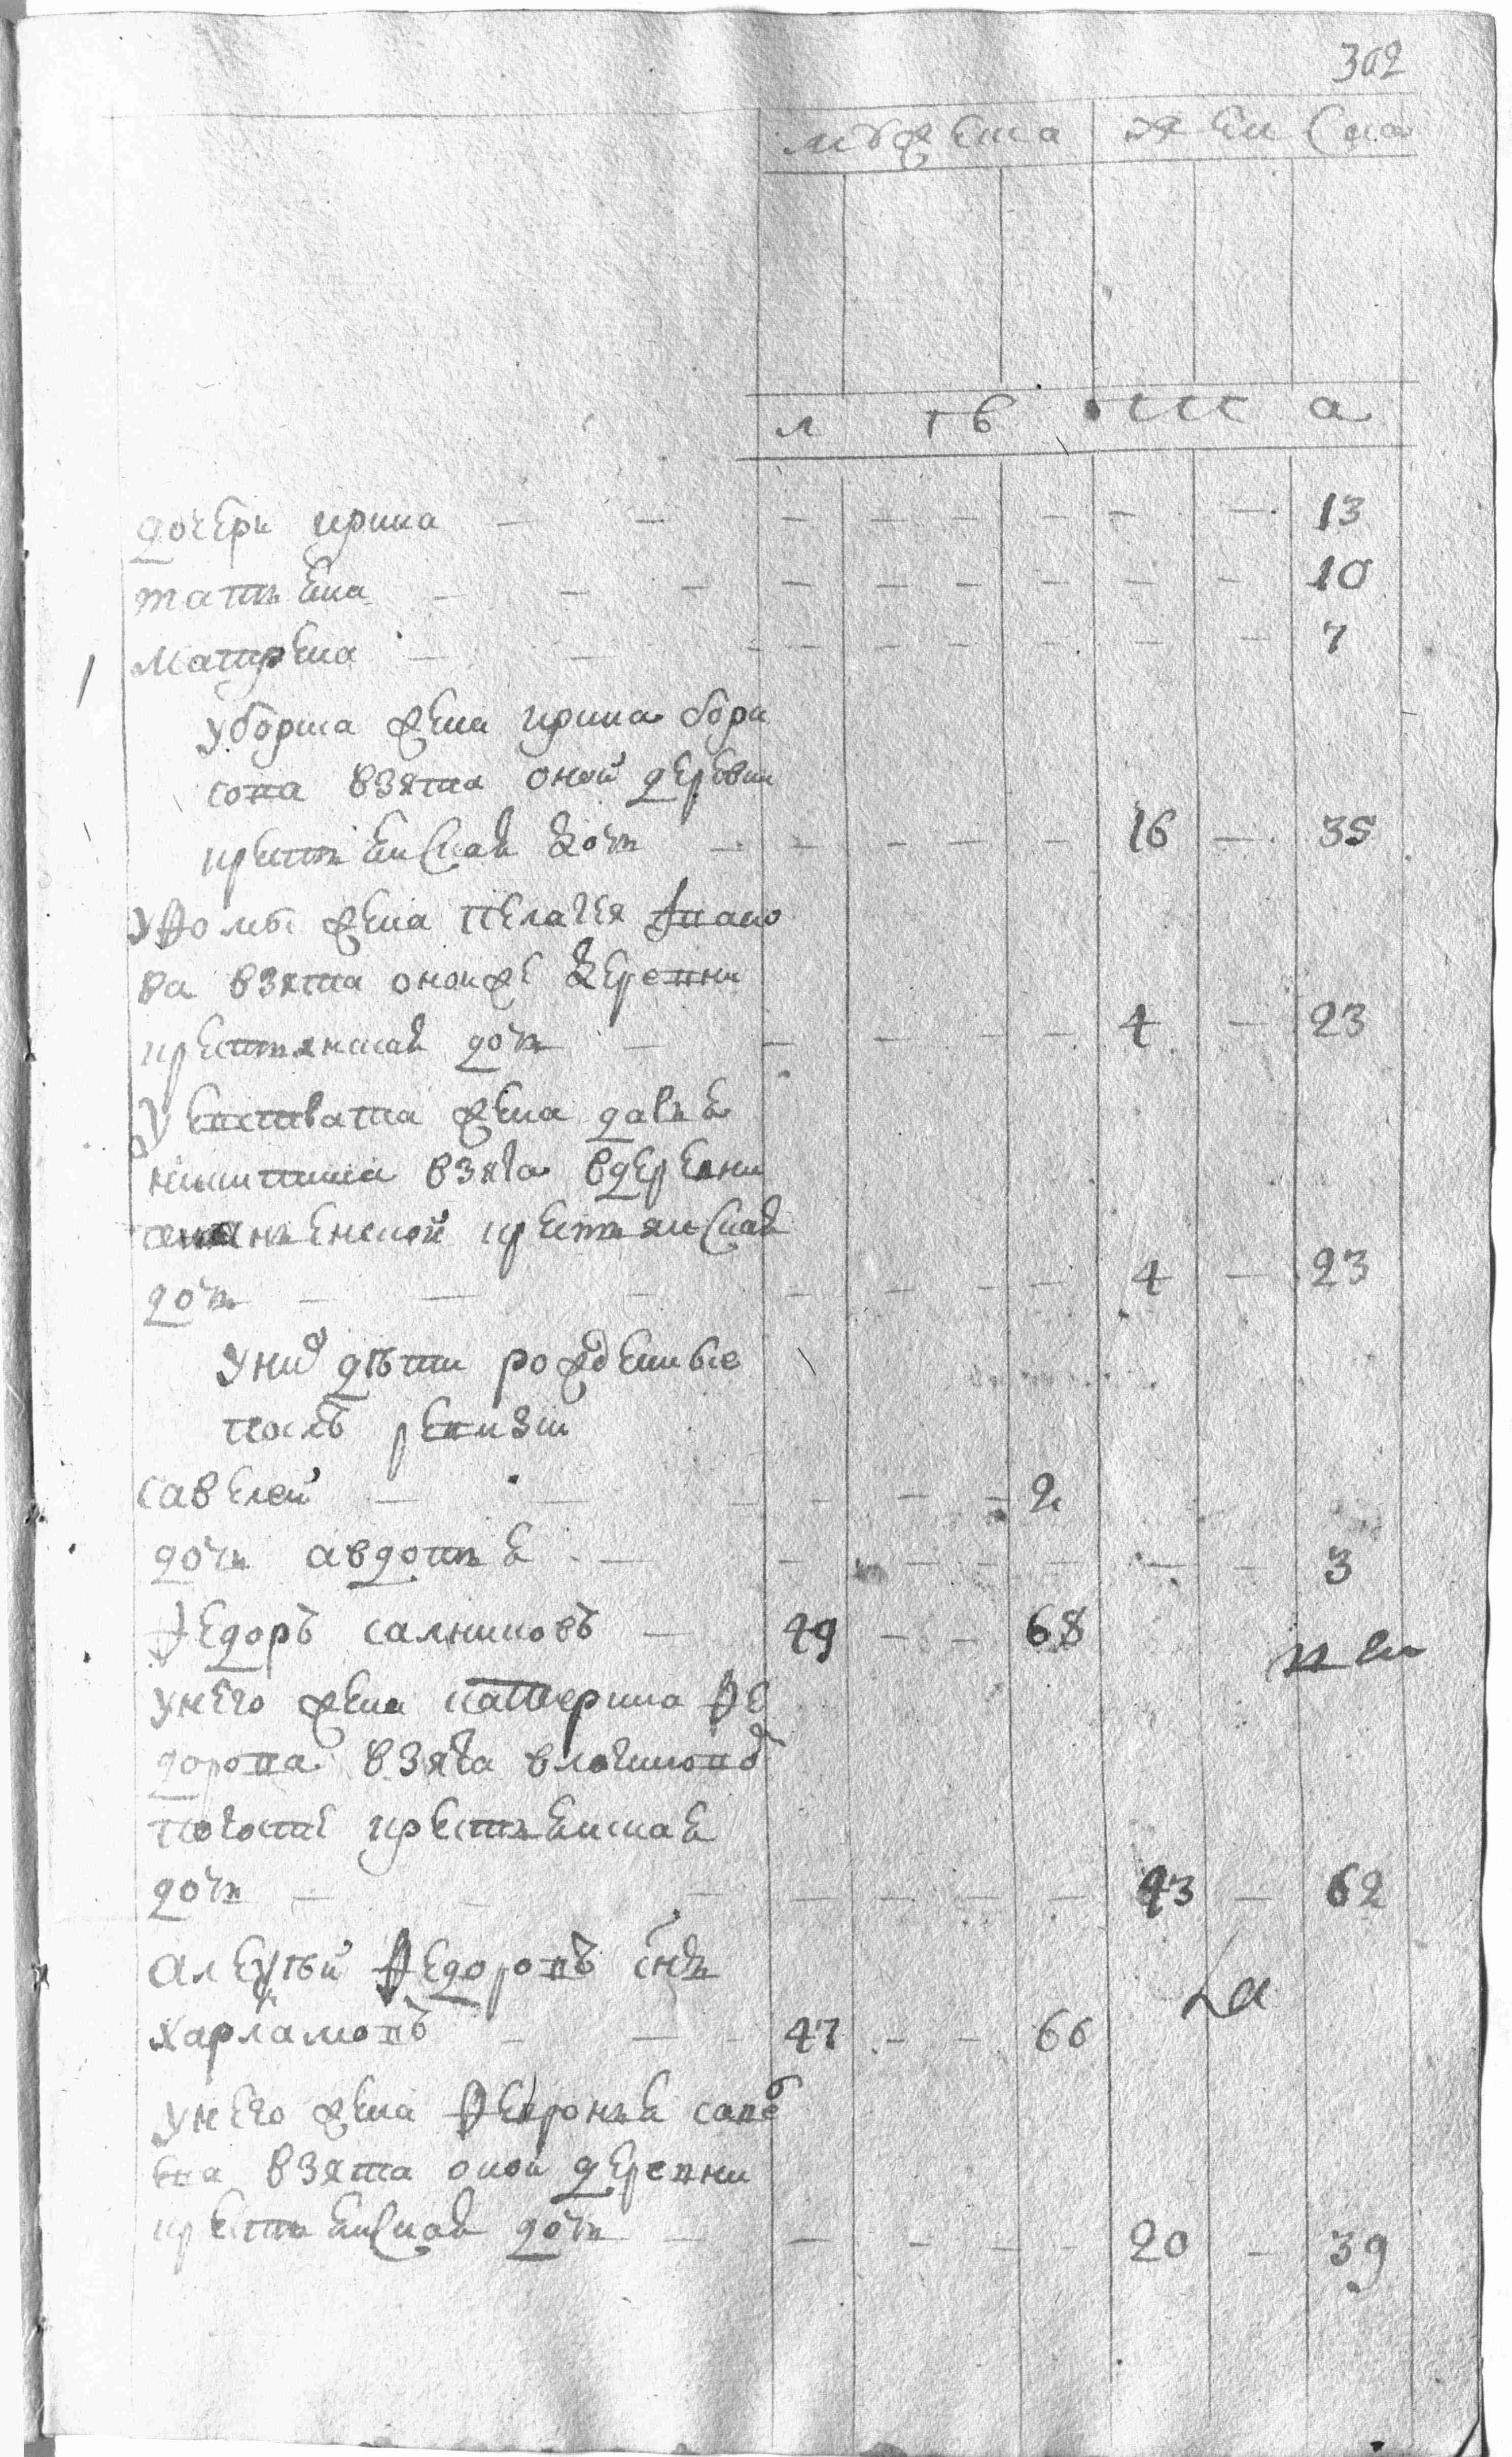 302
мужеска женска
л ѣ т а
дочери ирина — — — — — — — — 13
татьяна — — — — — — — — 10
матрена — — — — — — — — 7
у бориса жена ирина бори
сова взята оной деревни
крестьянская дочь — — — — — 16 — 35
у фомы жена пелагея
ва взята оной же деревни
крестьянская дочь — — — — — 4 — 23
у жена дарья
никитина взята в деревни
крестьянская
дочь — — — — — — — 4 — 23
у них дѣти рожденные
послѣ ревизии
савелей — — — — — — 2
дочь авдотья — — — — — — — 3
Федоръ салниковъ — 49 — — 68
у него жена катерина фе
дорова взята в
погосте крестьянская
дочь — — — — — — — 43 — 62
алексѣй Федоровъ снъ
харламовъ — — — 47 — — 66
у него жена февронья саве
ва взята оной деревни
крестьянская дочь — — — — — 20 — 39